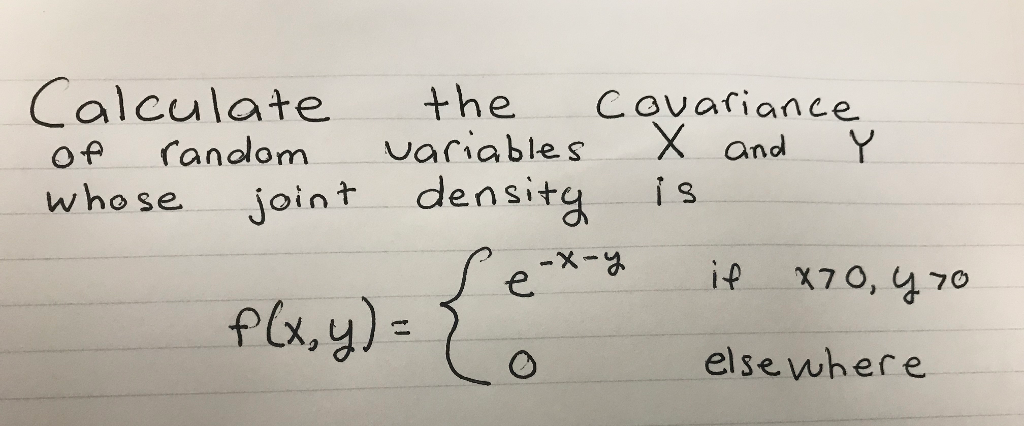 Calculate the Covariance
of random variables X and Y
whose joint density is
f(x,y) = { e^{-x-y} if x>0, y>0
0 elsewhere